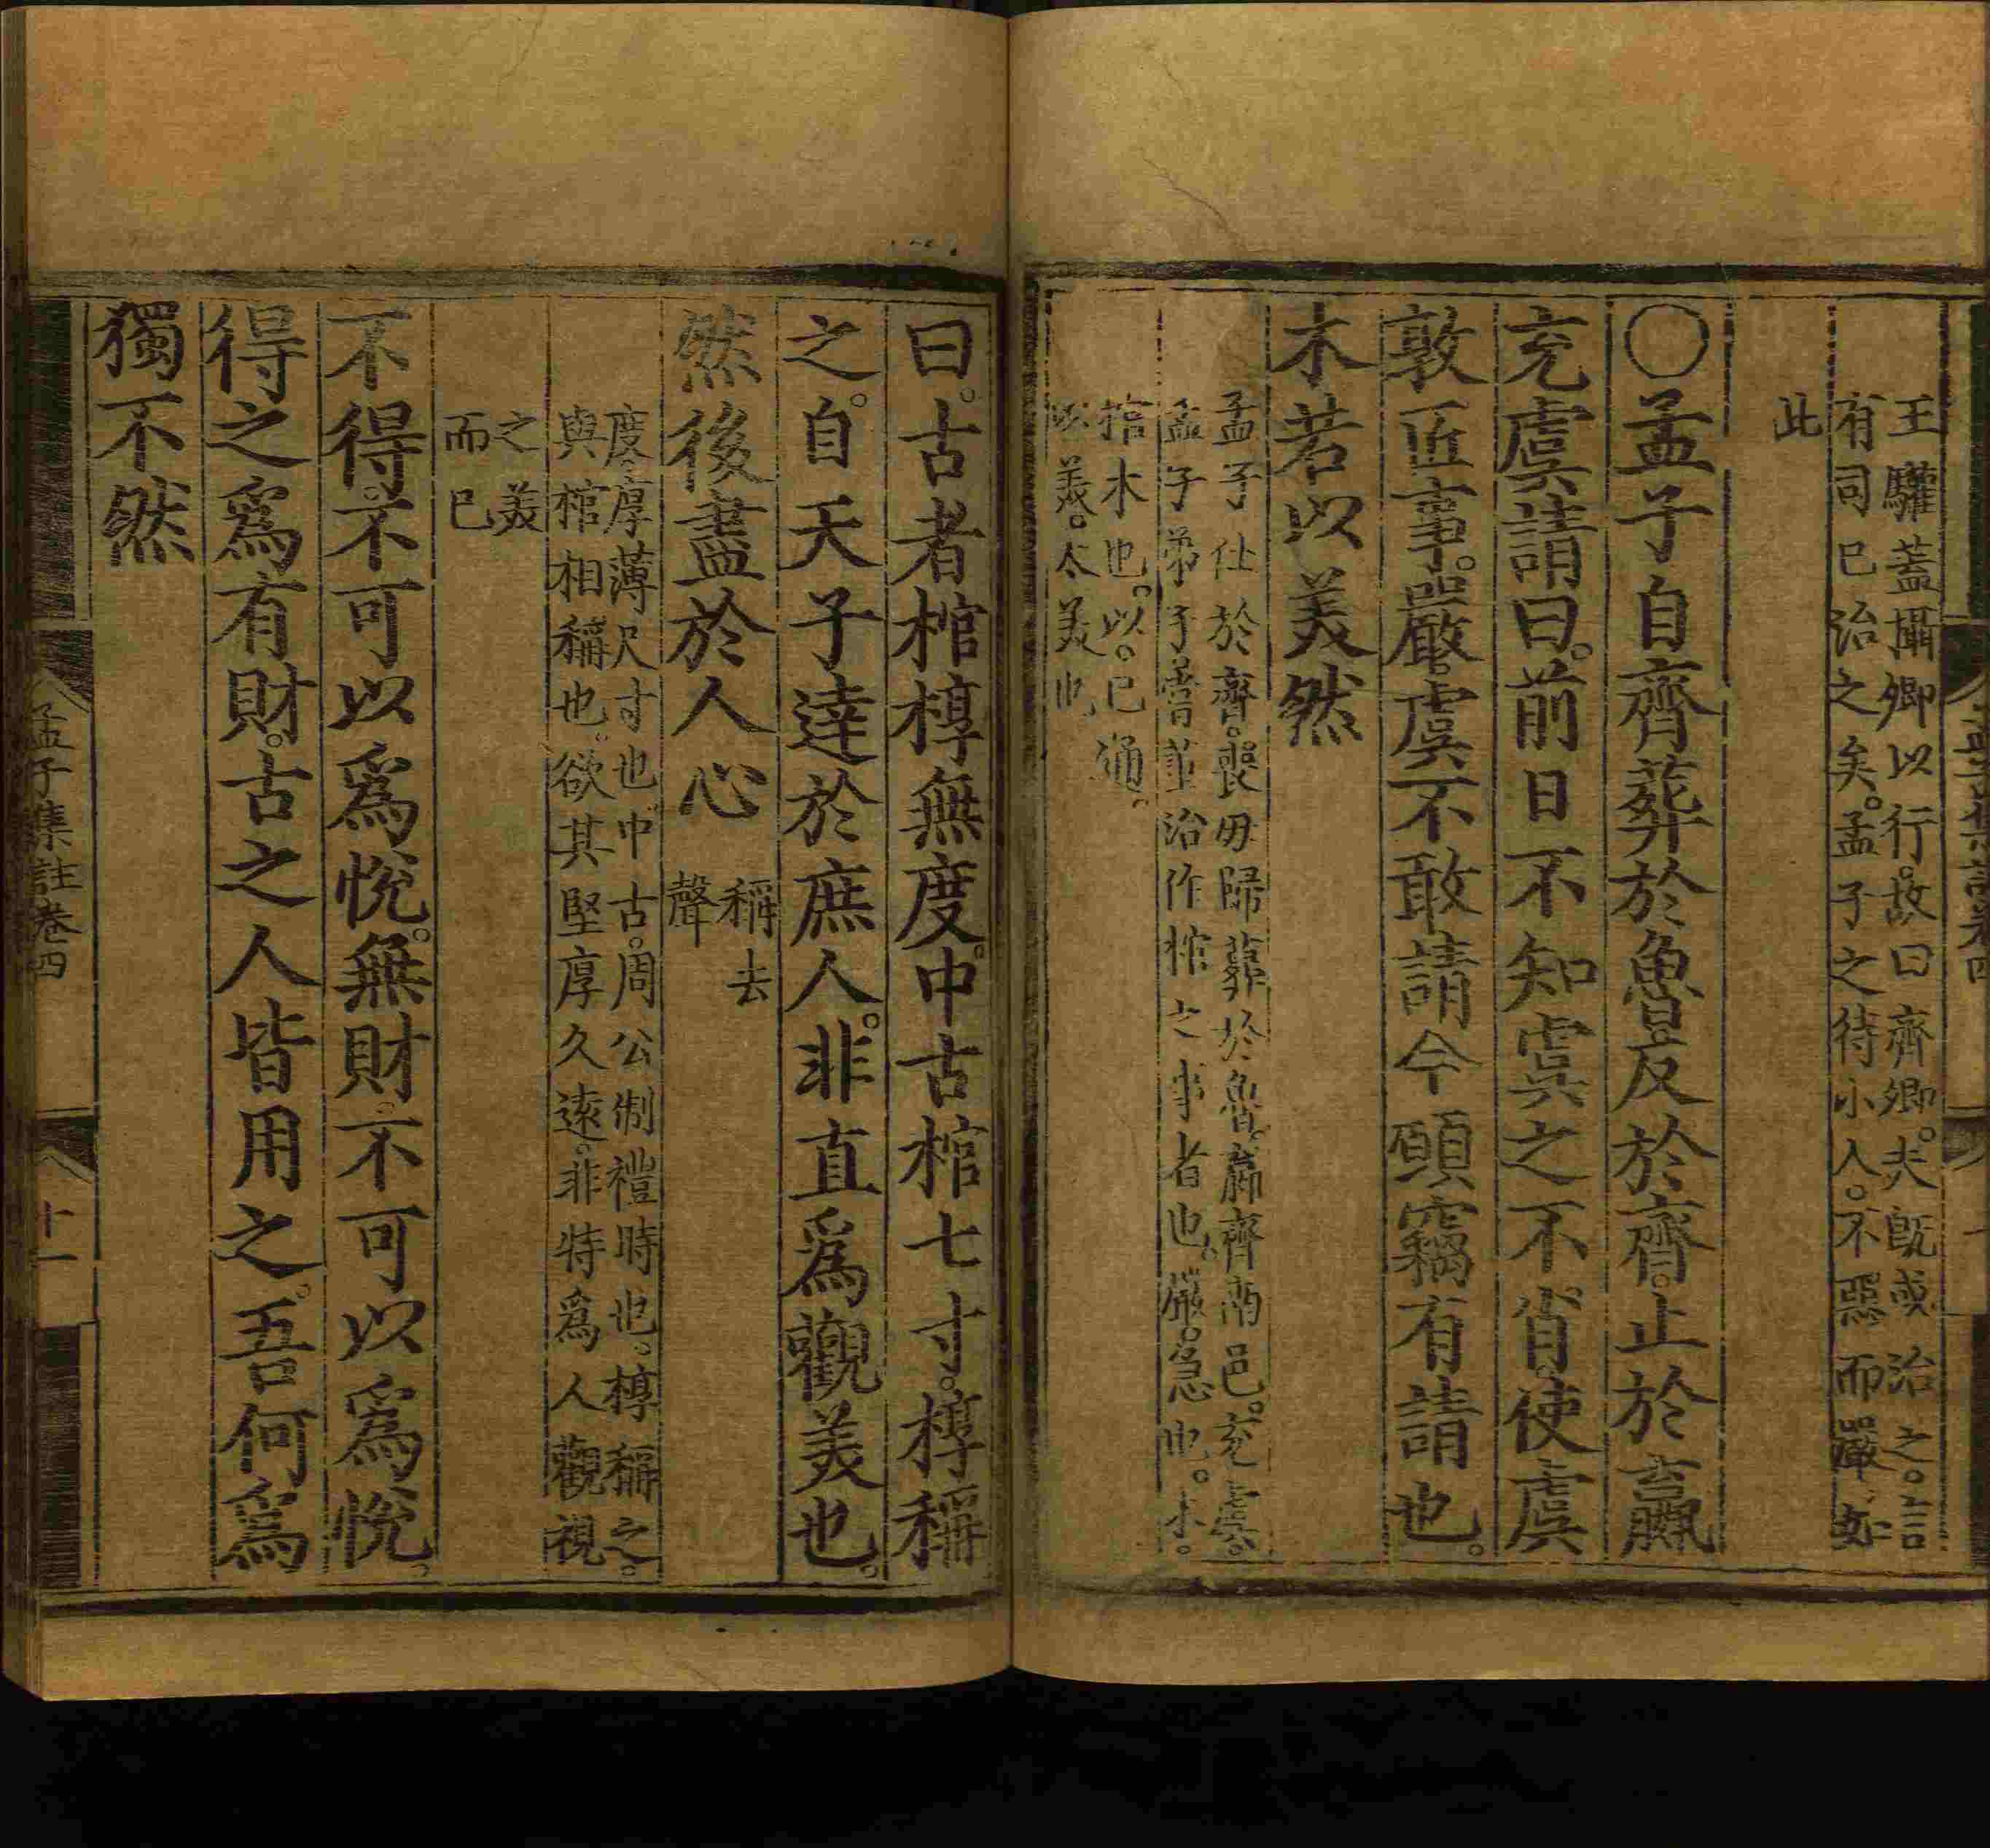 王驩蓋攝卿以行。故曰齊卿。夫既或治之。言
有司已治之矣。孟子之待小人。不惡而嚴。如
此
○孟子自齊葬於魯反於齊。止於嬴
充虞請曰。前日不知虞之不肖。使虞
敦匠事。嚴。虞不敢請今願竊有請也。
木若以美然
孟子仕於齊。喪母歸葬於魯。嬴齊南邑。充虞。
孟子弟子嘗董治作棺之事者也。嚴。急也。木。
棺木也。以。已通。
以美。太美也
曰。古者棺椁無度。中古棺七寸。椁稱
之。自天子達於庶人。非直爲觀美也。
然後盡於人心
稱去
聲
度。厚薄尺寸也。中古。周公制禮時也。椁稱之。
與棺相稱也。欲其堅厚久遠。非特爲人觀視
之美
而已
不得。不可以爲悅。無財。不可以爲悅。
得之爲有財。古之人皆用之。吾何爲
獨不然
孟子集註卷四
十一